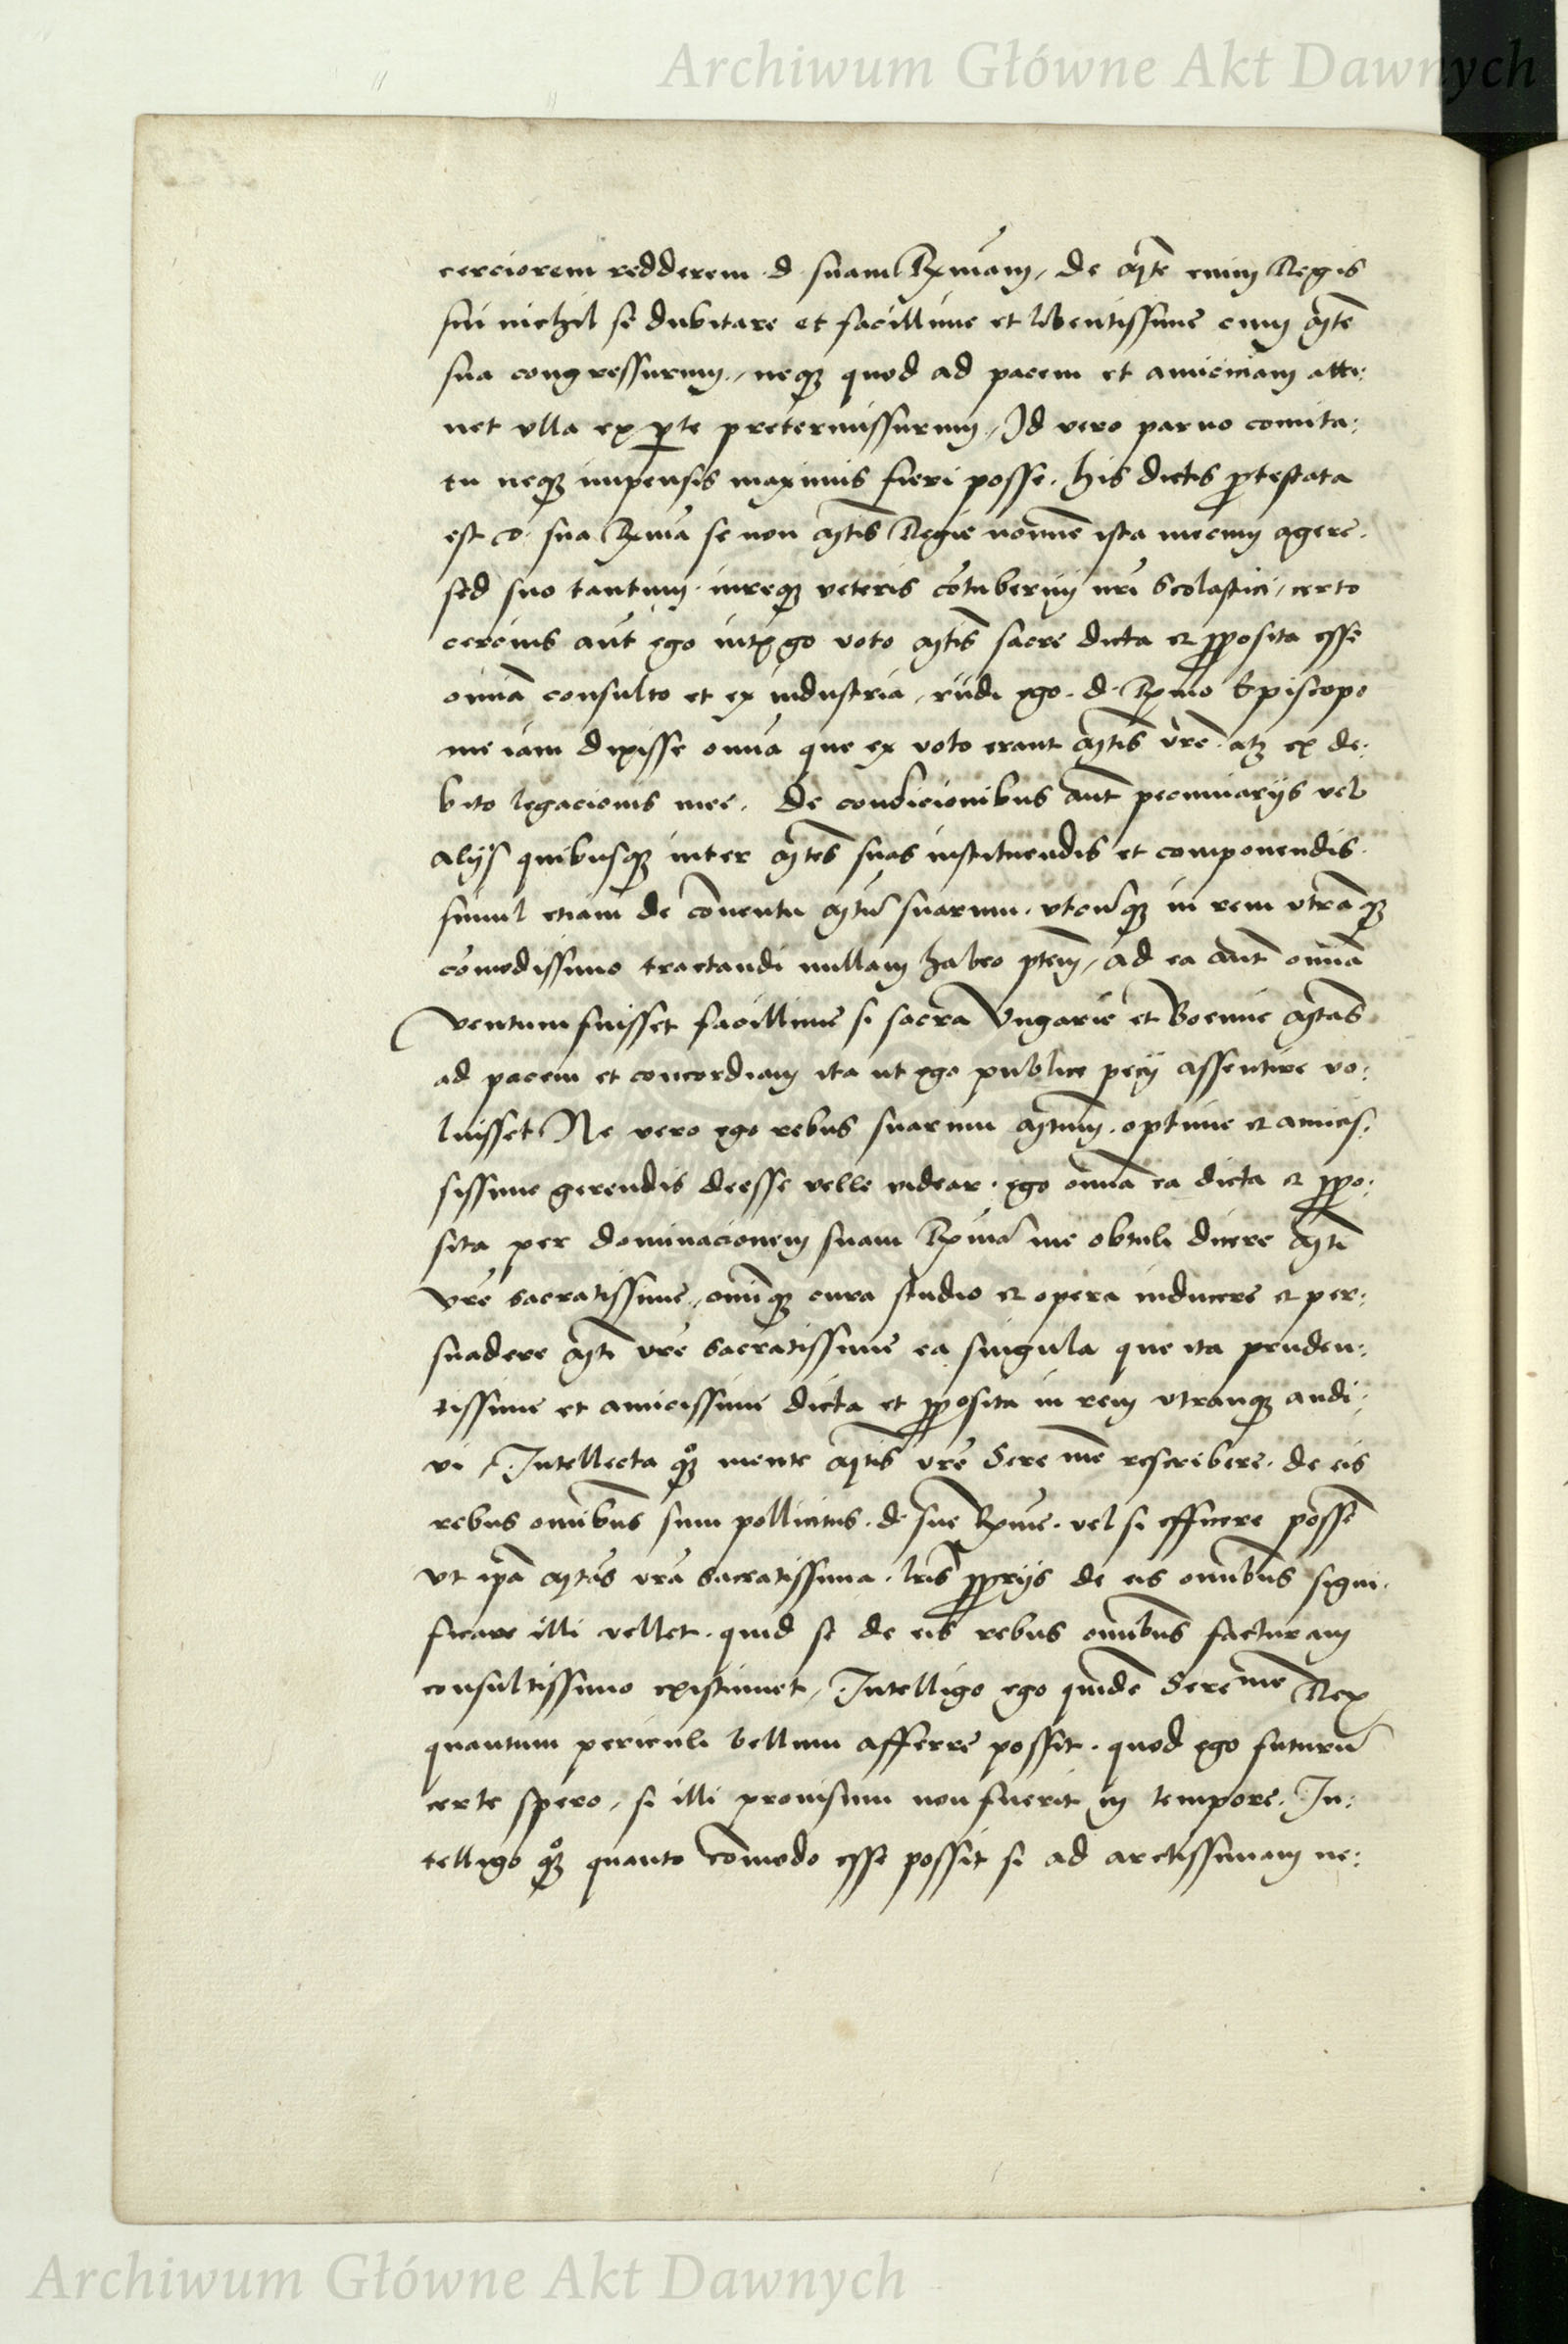 Archiwum Główne Akt Dawnych
cerciorem redderem d suam Rxmam, de mte enim Regis
sui nichil se dubitare et facillime et libentissime cum mte
sua congressurum, neqз quod ad pacem et amiciciam atti:
net vlla ex pte pretermissurum, Id vero paruo comita:
tu neqз impensis maximis fieri posse. his dictis ptestata
est d. sua Rxma se non mtis Regie nomine ista mecum agere.
sed suo tantum. iureqз veteris cōtubernij nri Scolastici, certo
cercius aut ego intgo voto mtis sacre dicta et pposita esse
omnia consulto et ex industria, rūdi ego. d. Rxmo Episcopo
me iam dixisse omnia que ex voto erant mtis vre. atqз ex de:
bito legacionis mee. De condicionibus aut pecuniarijs vel
alijs quibusqз inter mtes suas instituendis et componendis.
simul etiam de cōuentu mtū suarum. vtcūqз in rem vtrāqз
cōmodissimo tractandi nullam habeo ptem, ad ea aut omnia
ventum fuisset facillime si sacra Vngarie et Boemie mtas
ad pacem et concordiam ita ut ego publice pecij assentire vo:
luisset Ne vero ego rebus suarum mtum. optime et amicis:
sissime gerendis deesse velle videar. ego omnia ea dicta et ppo:
sita per dominacionem suam Rxmā me obtuli dicere mti
vre sacratissime, omniqз cura studio et opera inducere et per:
suadere mti vre sacratissime ea singula que ita pruden:
tissime et amicissime dicta et pposita in rem vtranqз audi:
vi, Intellecta qoqз mente mtis vre Sereme rescribere. de eis
rebus omnibus sum pollicitus. d. sue Rxme. vel si efficere possē
vt ipa mtas vra sacratissima. lris pprijs de eis omnibus signi:
ficare illi vellet. quid se de eis rebus omnibus facturam
consultissimo existimet, Intelligo ego quidē Sereme Rex
quantum periculi bellum afferre possit. quod ego futurū
certe spero, si illi prouisum non fuerit in tempore. In:
telligo qoqз quanto cōmodo esse possit si ad arctissimam ne:
Archiwum Główne Akt Dawnych